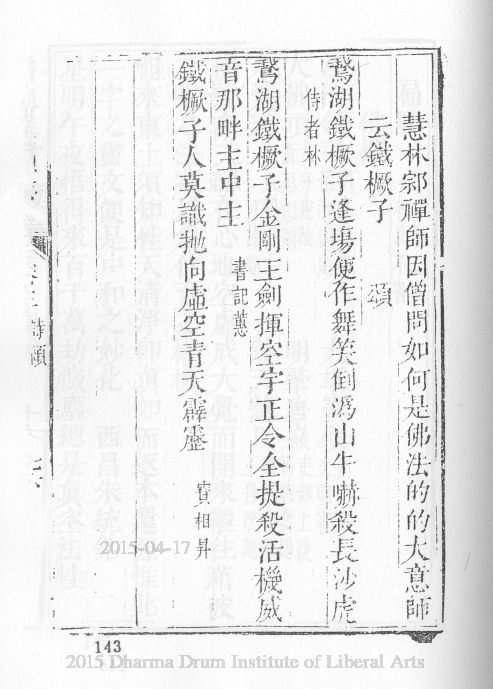 慧林㝮禪師因僧問如何是佛法的的大意師
云鐵橛子　　頌
鵞湖鐵橛子逢塲便作舞笑倒溈山牛嚇殺長沙虎
侍者林
鵞湖鐵橛子金剛王劍揮空宇正令全提殺活機威
音那畔主中主
書記蕙
鐵橛子人莫識拋向虛空青天霹靂
寶相昇
詩頌
143
2015-04-17
2015 Dharma Drum Institute of Liberal Arts